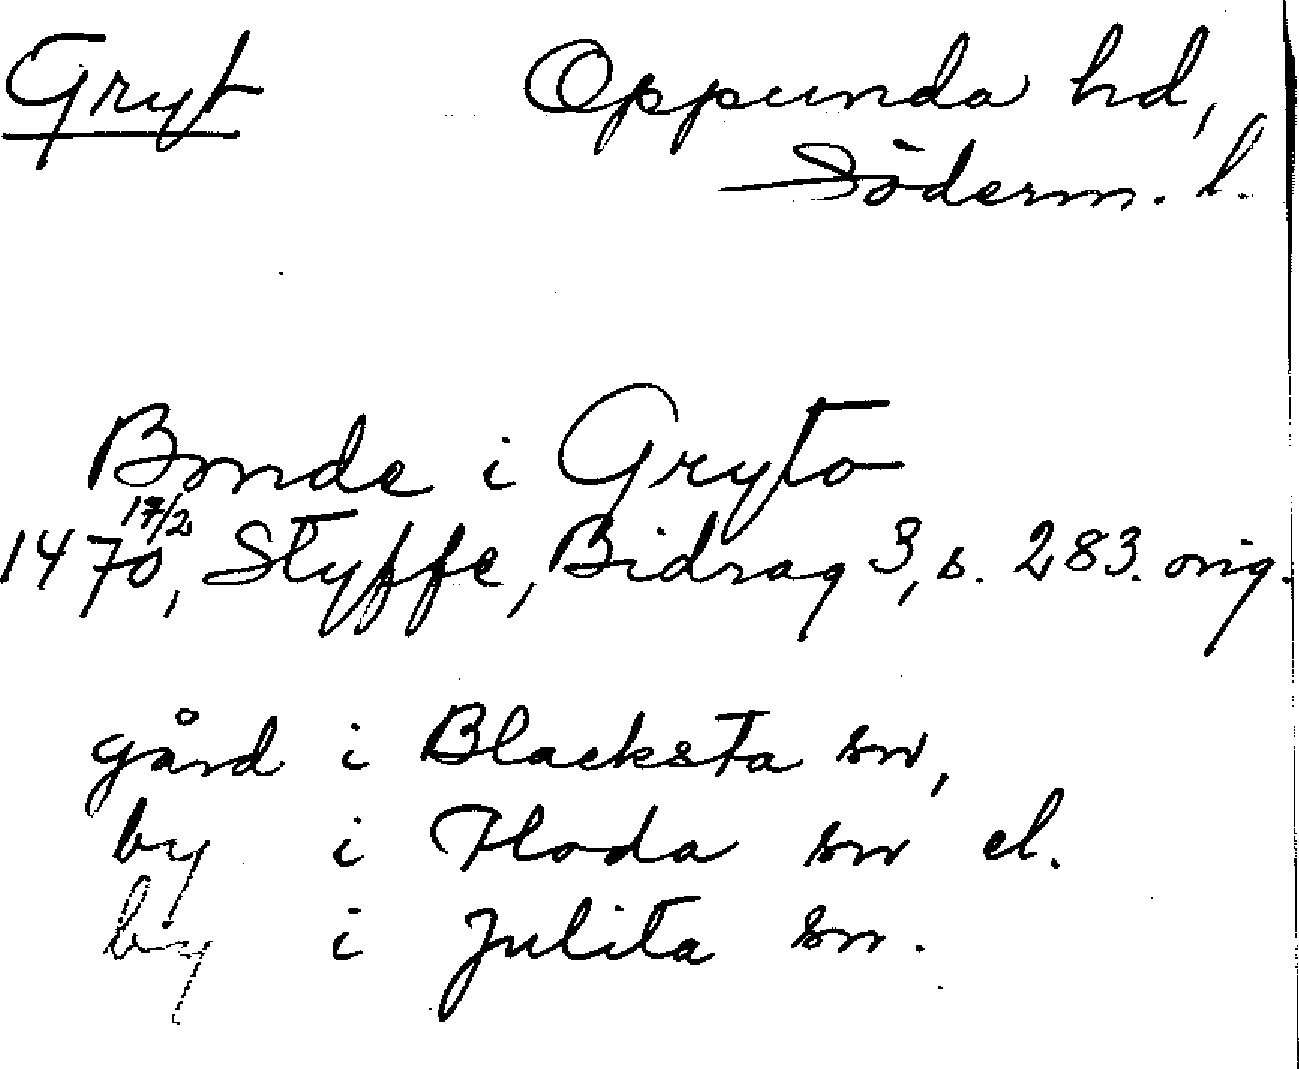 Gryt Oppunda hd,
Söderm. l.
Bonde i Gryto
1470 17/2, Styffe, Bidrag 3, s. 283. orig.
gård i Blacksta sn,
by i Floda sn el.
by i Julita sn.